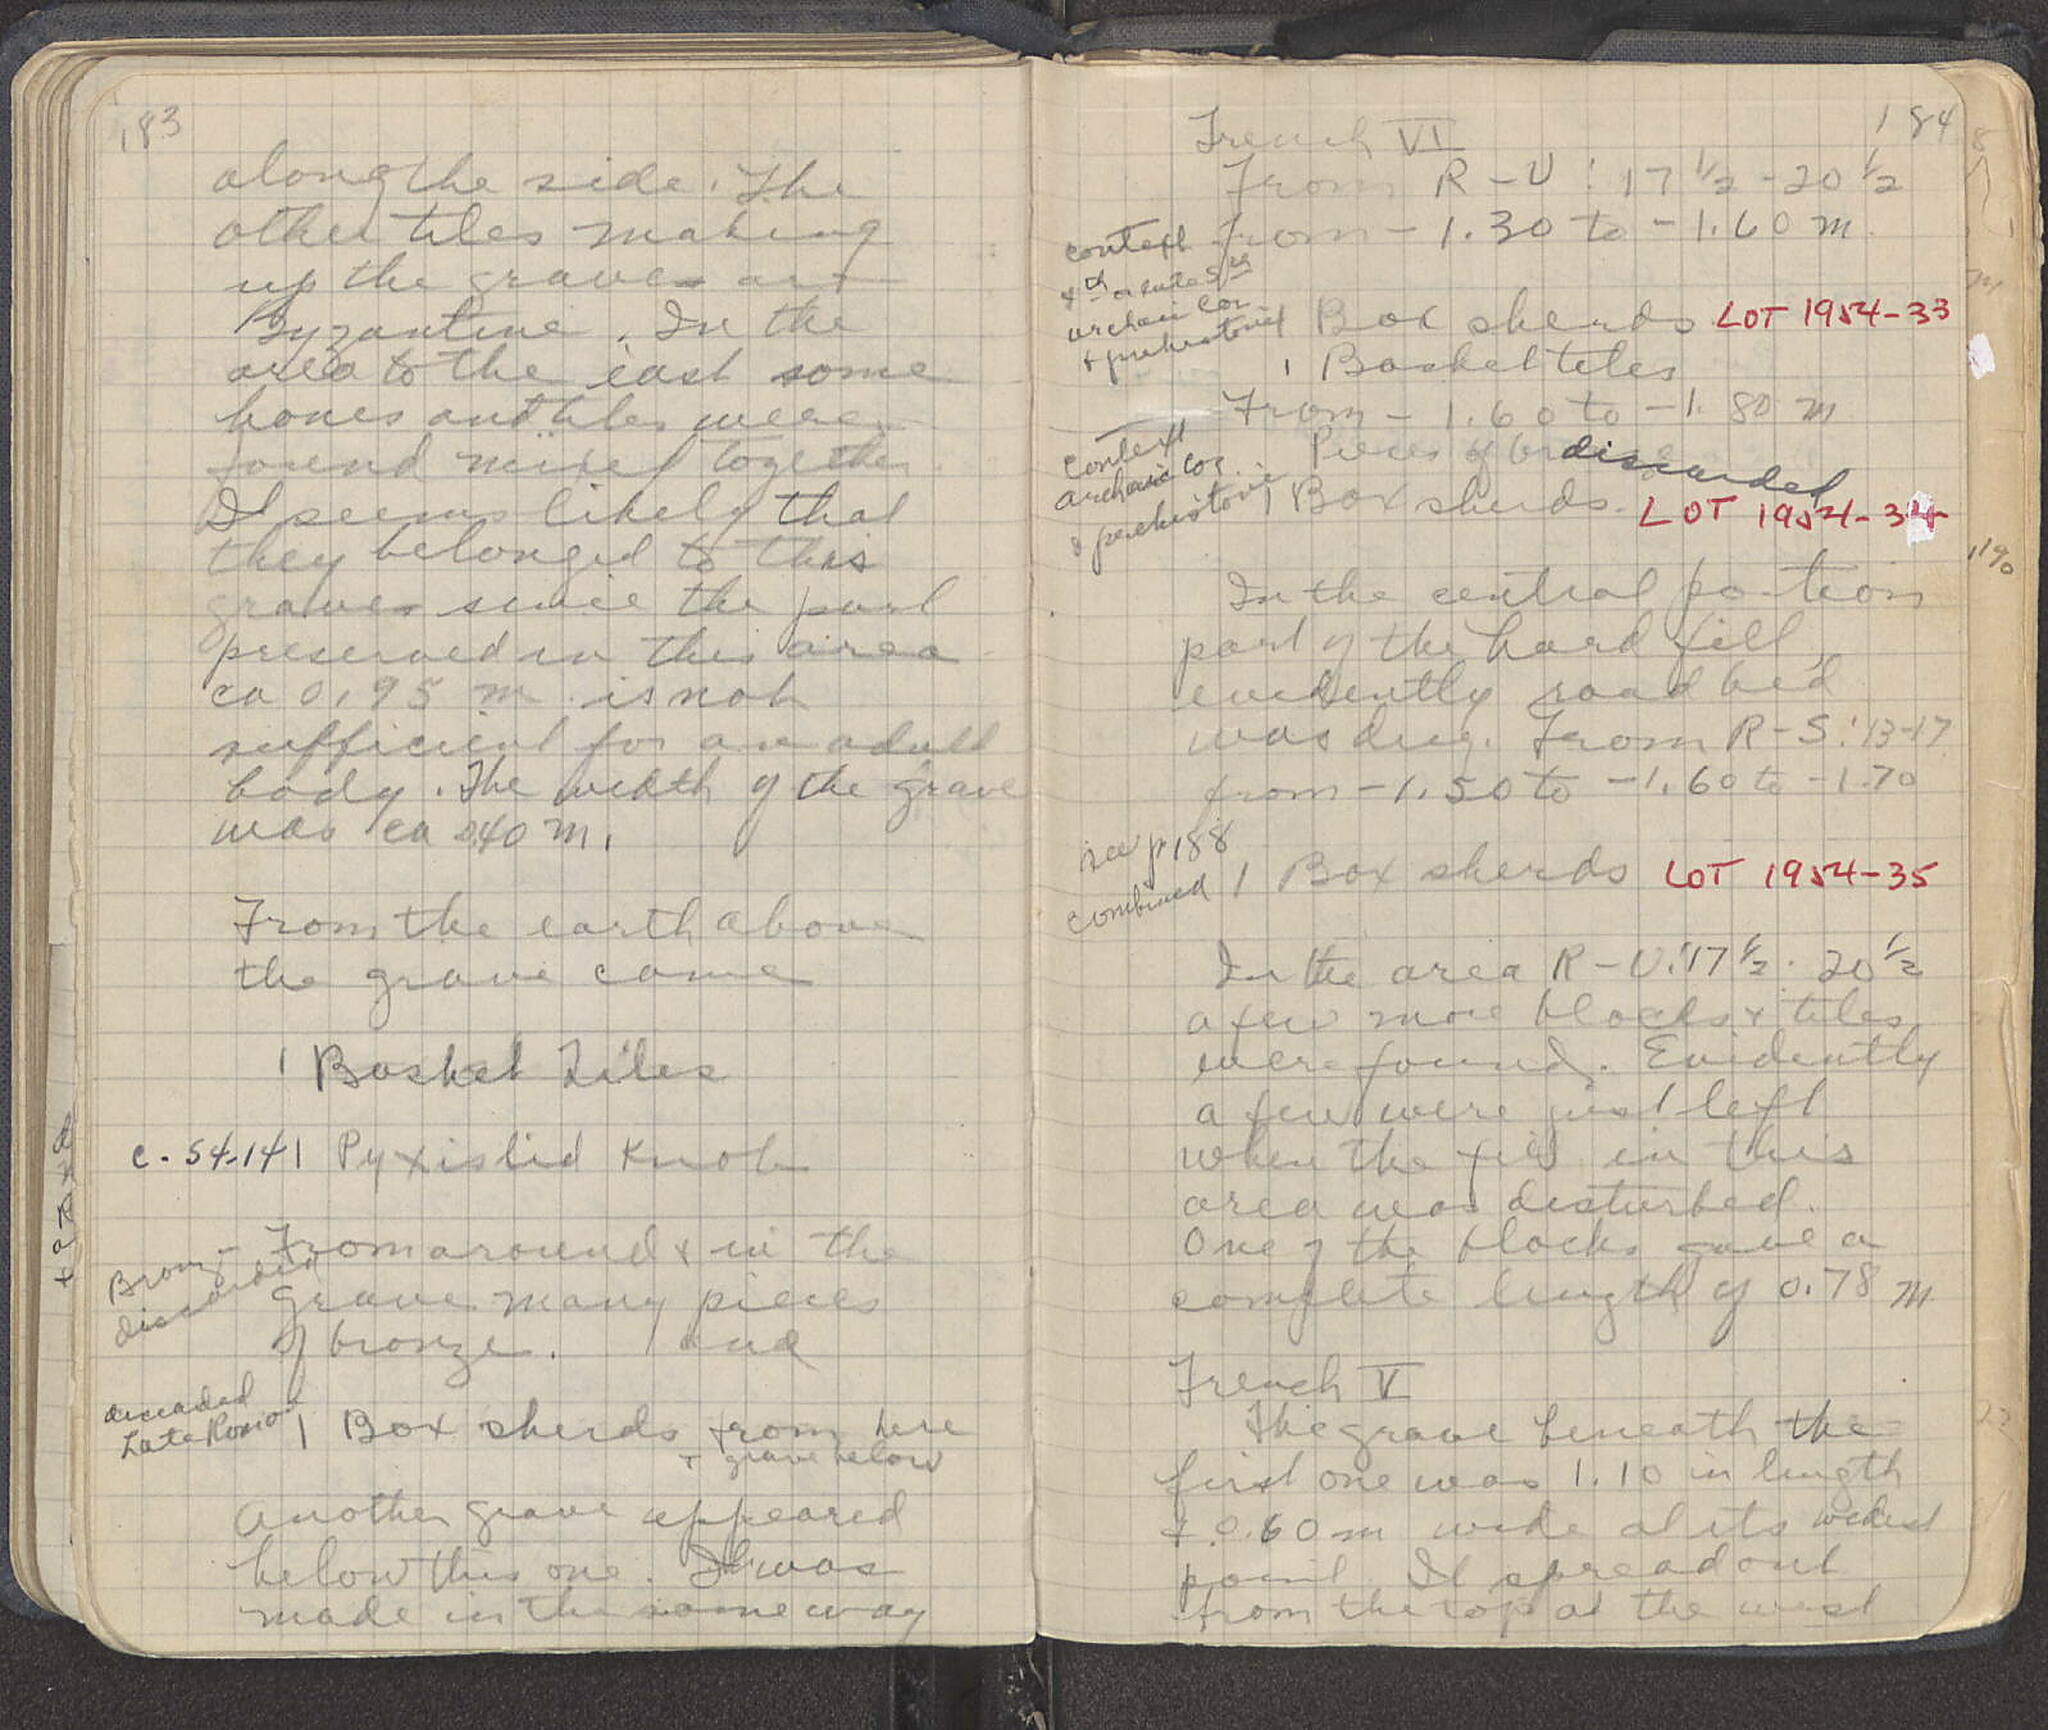 183
along the side. The
other tiles making
up the graves are
Byzantine. In the
area to the east some
bones and tiles were
found mixed together
It seems likely that
they belonged to this
graves since the part
preserved in this area
ca 0.95 m is not
sufficient for an adult
body. The width of the grave
was ca 0.40 m.
From the earth above
the grave came
1 Basket Tiles
C-54-141 Pyxis lid Knob
Bronze
discarded
From around & in the
grave many pieces
of bronze. and
discarded
Late Roman
1 Box sherds from here
& grave below
Another grave appeared
below this one. It was
made in the same way
184
Trench VI
From R-U: 17 1/2 - 20 1/2
from -1.30 to -1.60 m.
context
archaic Cor
& prehistoric
1 Box sherds LOT 1954-33
1 Basket tiles
From -1.60 to -1.80 m
Pieces of discarded
context
archaic Cor.
& prehistoric
1 Box sherds. LOT 1954-34
In the central portion
part of the hard fill,
evidently road bed
was dug. From R-S: 13-17
from -1.50 to -1.60 to -1.70
see p 188
combined
1 Box sherds LOT 1954-35
In the area R-U: 17 1/2 - 20 1/2
a few more blocks & tiles
were found. Evidently
a few were just left
when the fill in this
area was disturbed.
One of the blocks gave a
complete length of 0.78 m
Trench V
The grave beneath the
first one was 1.10 in length
& 0.60 m wide at its widest
point. It spread out
from the top at the west